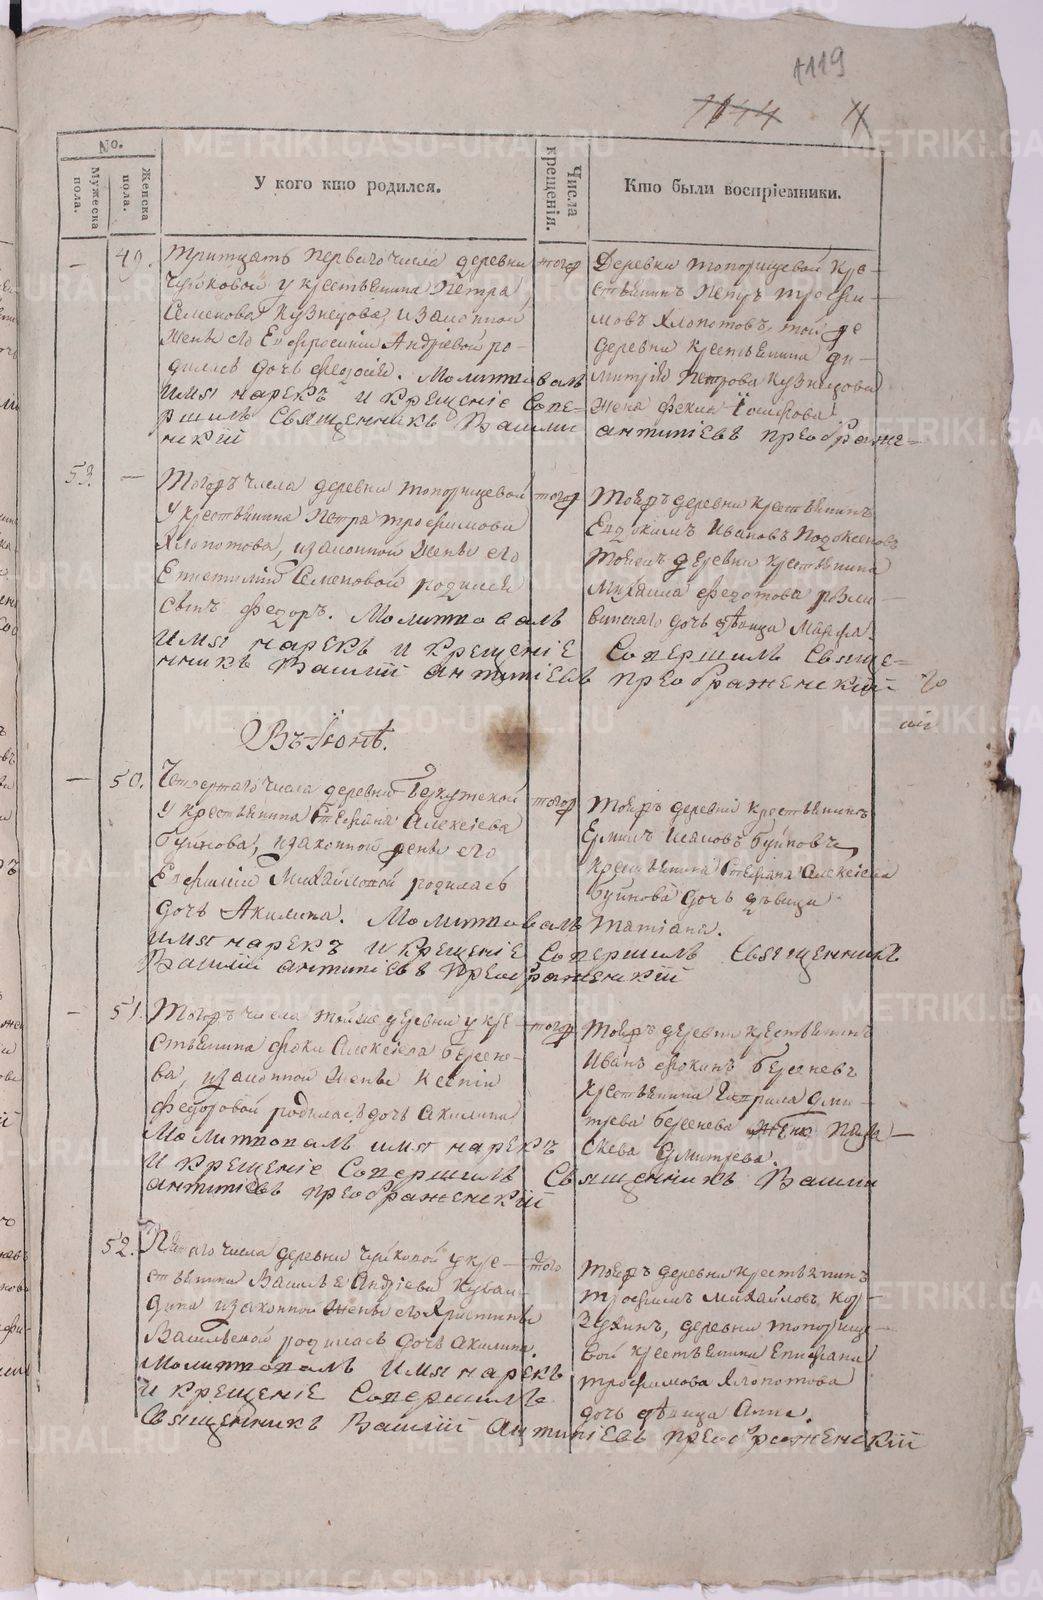 1119
1144 11
No.
Мужеска пола.
Женска пола.
У кого кто родился.
Числа крещенія.
Кто были воспріемники.
— 49. Тритцать перваго числа деревни
Чуйковой у крестьянина Петра
Семенова Кузнецова, и законной
жены его Евфросиніи Андріевой ро-
дилась дочь Феодосія. Молитвовалъ
имя нарекъ и крещеніе Совер-
шилъ Священникъ Васили
тогож
Деревни Топорищевой кре-
стьянинъ Петръ Трофи-
мовъ Хлопотовъ, той же
деревни крестьянина Ди-
митрія Петрова Кузнецова
жена Фекла
антипіевъ преображе-
нскій
53. — Тогожъ числа деревни Топорищевой
У крестьянина Петра Трофимова
Хлопотова, и законной жены его
Епистиміи Семеновой родился
сынъ Федоръ. Молитвовалъ
имя нарекъ и крещеніе Совершилъ Свяще-
нникъ Василій антипіевъ преображенскій
тогож
Тойжъ деревни крестьянинъ
Евдокимъ Ивановъ
Тойжъ деревни крестьянина
Михаила Федотова
дочь дѣвица Марфа.
Въ Іюнѣ.
— 50. Четвертаго числа деревни
У крестьянина Стефана Алексіева
Буйнова, и законной жены его
Евфиміи Михайловой родилась
дочь Акилина. Молитвовалъ
имя нарекъ и крещеніе Совершилъ Священникъ
Василій антипіевъ преображенскій
тогож
Тойжъ деревни крестьянинъ
Ермилъ Исаковъ Буйновъ,
крестьянина Стефана Алексіева
Буйнова дочь дѣвица
Татіана.
— 51. Тогожъ числа тойже деревни у кре-
стьянина Фоки Алексіева Берсене-
ва, и законной жены Ксеніи
Федоровой родилась дочь Акилина
Молитвовалъ имя нарекъ
и крещеніе Совершилъ Священникъ Васили
антипіевъ преображенскій
тогож
Тойжъ деревни крестьянинъ
Иванъ Фокинъ Берсеневъ
крестьянина Гаврила Дми-
тріева Берсенева жена Пара-
скева Дмитріева.
52. Пятаго числа деревни Чуйковой у кре-
стьянина Василья Андріева
и законной жены его Христины
Васильевой родилась дочь Акилина.
Молитвовалъ имя нарекъ
и крещеніе Совершилъ
Священникъ Василій антипіевъ преображенскій
того
Тойжъ деревни крестьянинъ
Трофимъ Михайловъ
деревни Топорище-
вой крестьянина Епифана
Трофимова Хлопотова
дочь дѣвица Анна.
METRIKI.GASO-URAL.RU